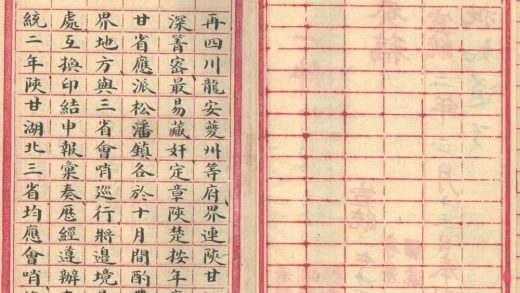 再四川龍安夔州等府界連陝甘
深箐密最易藏奸定章陝楚按年
甘省應派松潘鎮各於十月間酌
界地方與三省會哨巡行將邊境
處互換印結申報彙奏歷經遵辦
統二年陝甘湖北三省均應會哨